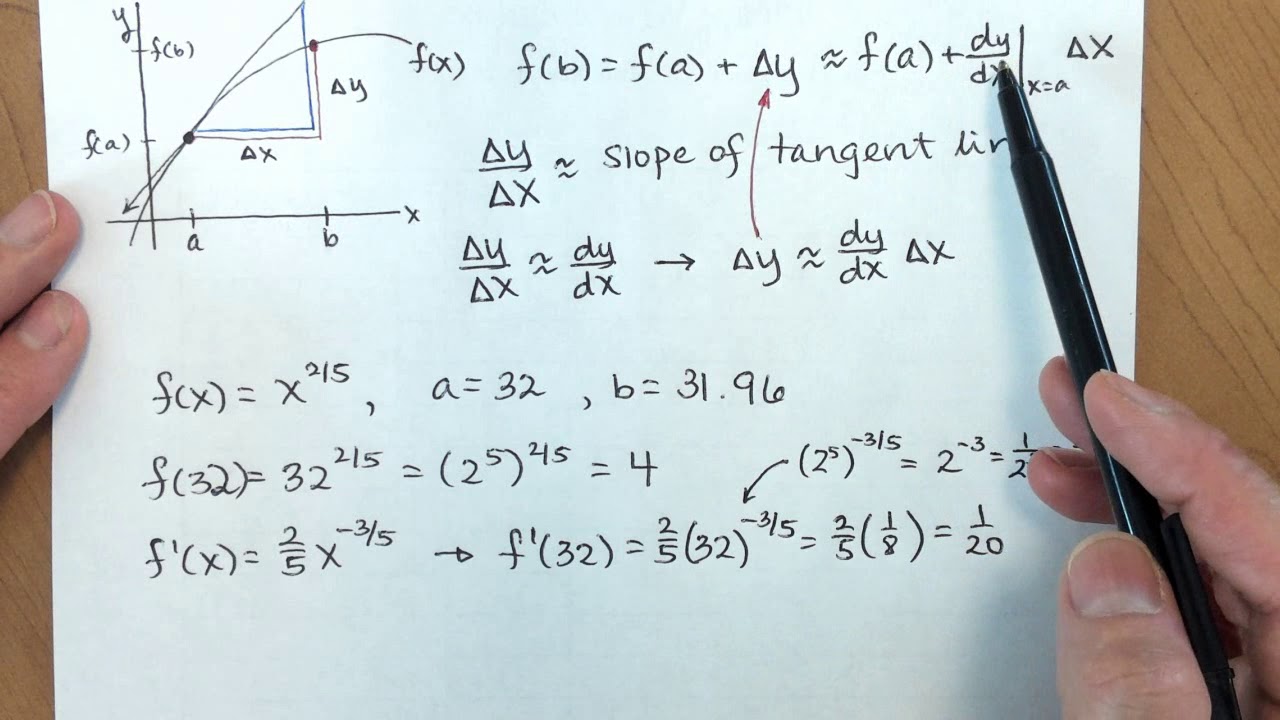 y
f(b)
f(x)
Δy
f(a)
Δx
x
a
b
f(b) = f(a) + Δy ≈ f(a) + dy/dx |x=a Δx
Δy/Δx ≈ slope of tangent
Δy/Δx ≈ dy/dx → Δy ≈ dy/dx Δx
f(x) = x^2/5, a = 32, b = 31.96
f(32) = 32^2/5 = (2^5)^2/5 = 4
(2^5)^-3/5 = 2^-3 =
f'(x) = 2/5 x^-3/5 → f'(32) = 2/5 (32)^-3/5 = 2/5 (1/8) = 1/20